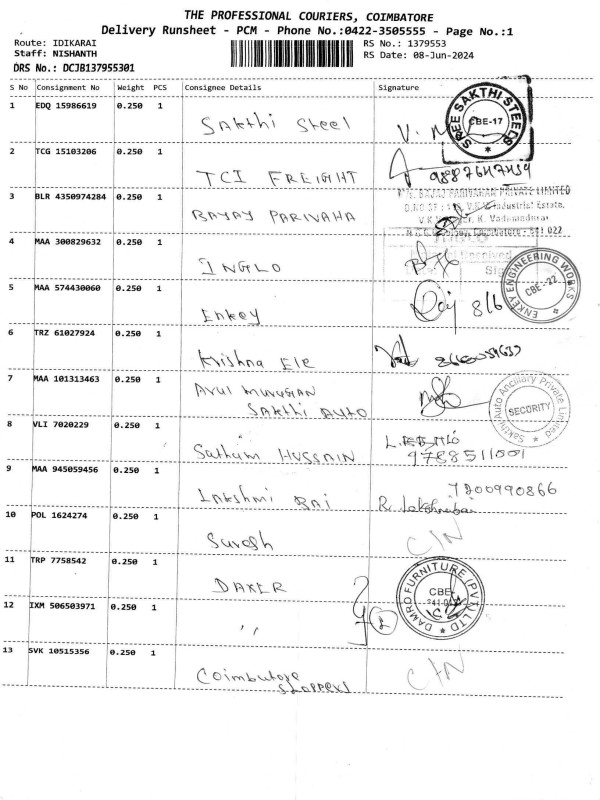 THE PROFESSIONAL COURIERS, COIMBATORE
Delivery Runsheet - PCM - Phone No.:0422-3505555 - Page No.:1
Route: IDIKARAI RS No.: 1379553
Staff: NISHANTH RS Date: 08-Jun-2024
DRS No.: DCJB137955301
S No Consignment No Weight PCS Consignee Details Signature
1 EDQ 15986619 0.250 1 Sakthi Steel SREE SAKTHI STEELS CBE-17
2 TCG 15103206 0.250 1 TCI FREIGHT
3 BLR 4350974284 0.250 1 BAJAJ PARIVAHA
4 MAA 300829632 0.250 1 INGLO
5 MAA 574430060 0.250 1 Enkey 8/6 ENKEY ENGINEERING WORKS CBE-22
6 TRZ 61027924 0.250 1 Krishna Ele
7 MAA 101313463 0.250 1 Arul Murugan
Sakthi Auto Sakthi Auto Ancillary Private Limited SECURITY
8 VLI 7020229 0.250 1 Sathum HUSSAIN
9788511001
9 MAA 945059456 0.250 1 Lakshmi Bai 7200990866
10 POL 1624274 0.250 1 Suresh C/N
11 TRP 7758542 0.250 1 DAKER DAMRO FURNITURE (PVT) LTD CBE
12 IXM 506503971 0.250 1 ,, 2
13 SVK 10515356 0.250 1 Coimbatore
Shoppers C/N